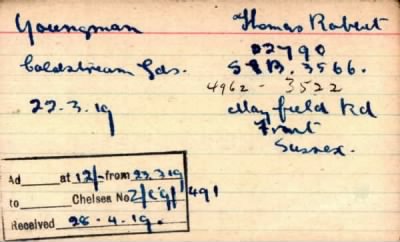 Youngman Thomas Robert
22790
Coldstream Gds. S.P.B. 3566.
4962 - 3522
22.3.19 Mayfield Rd
Frant
Sussex.
Ad at 12/- from 22.3.19
to Chelsea No 491
Received 28.4.19.